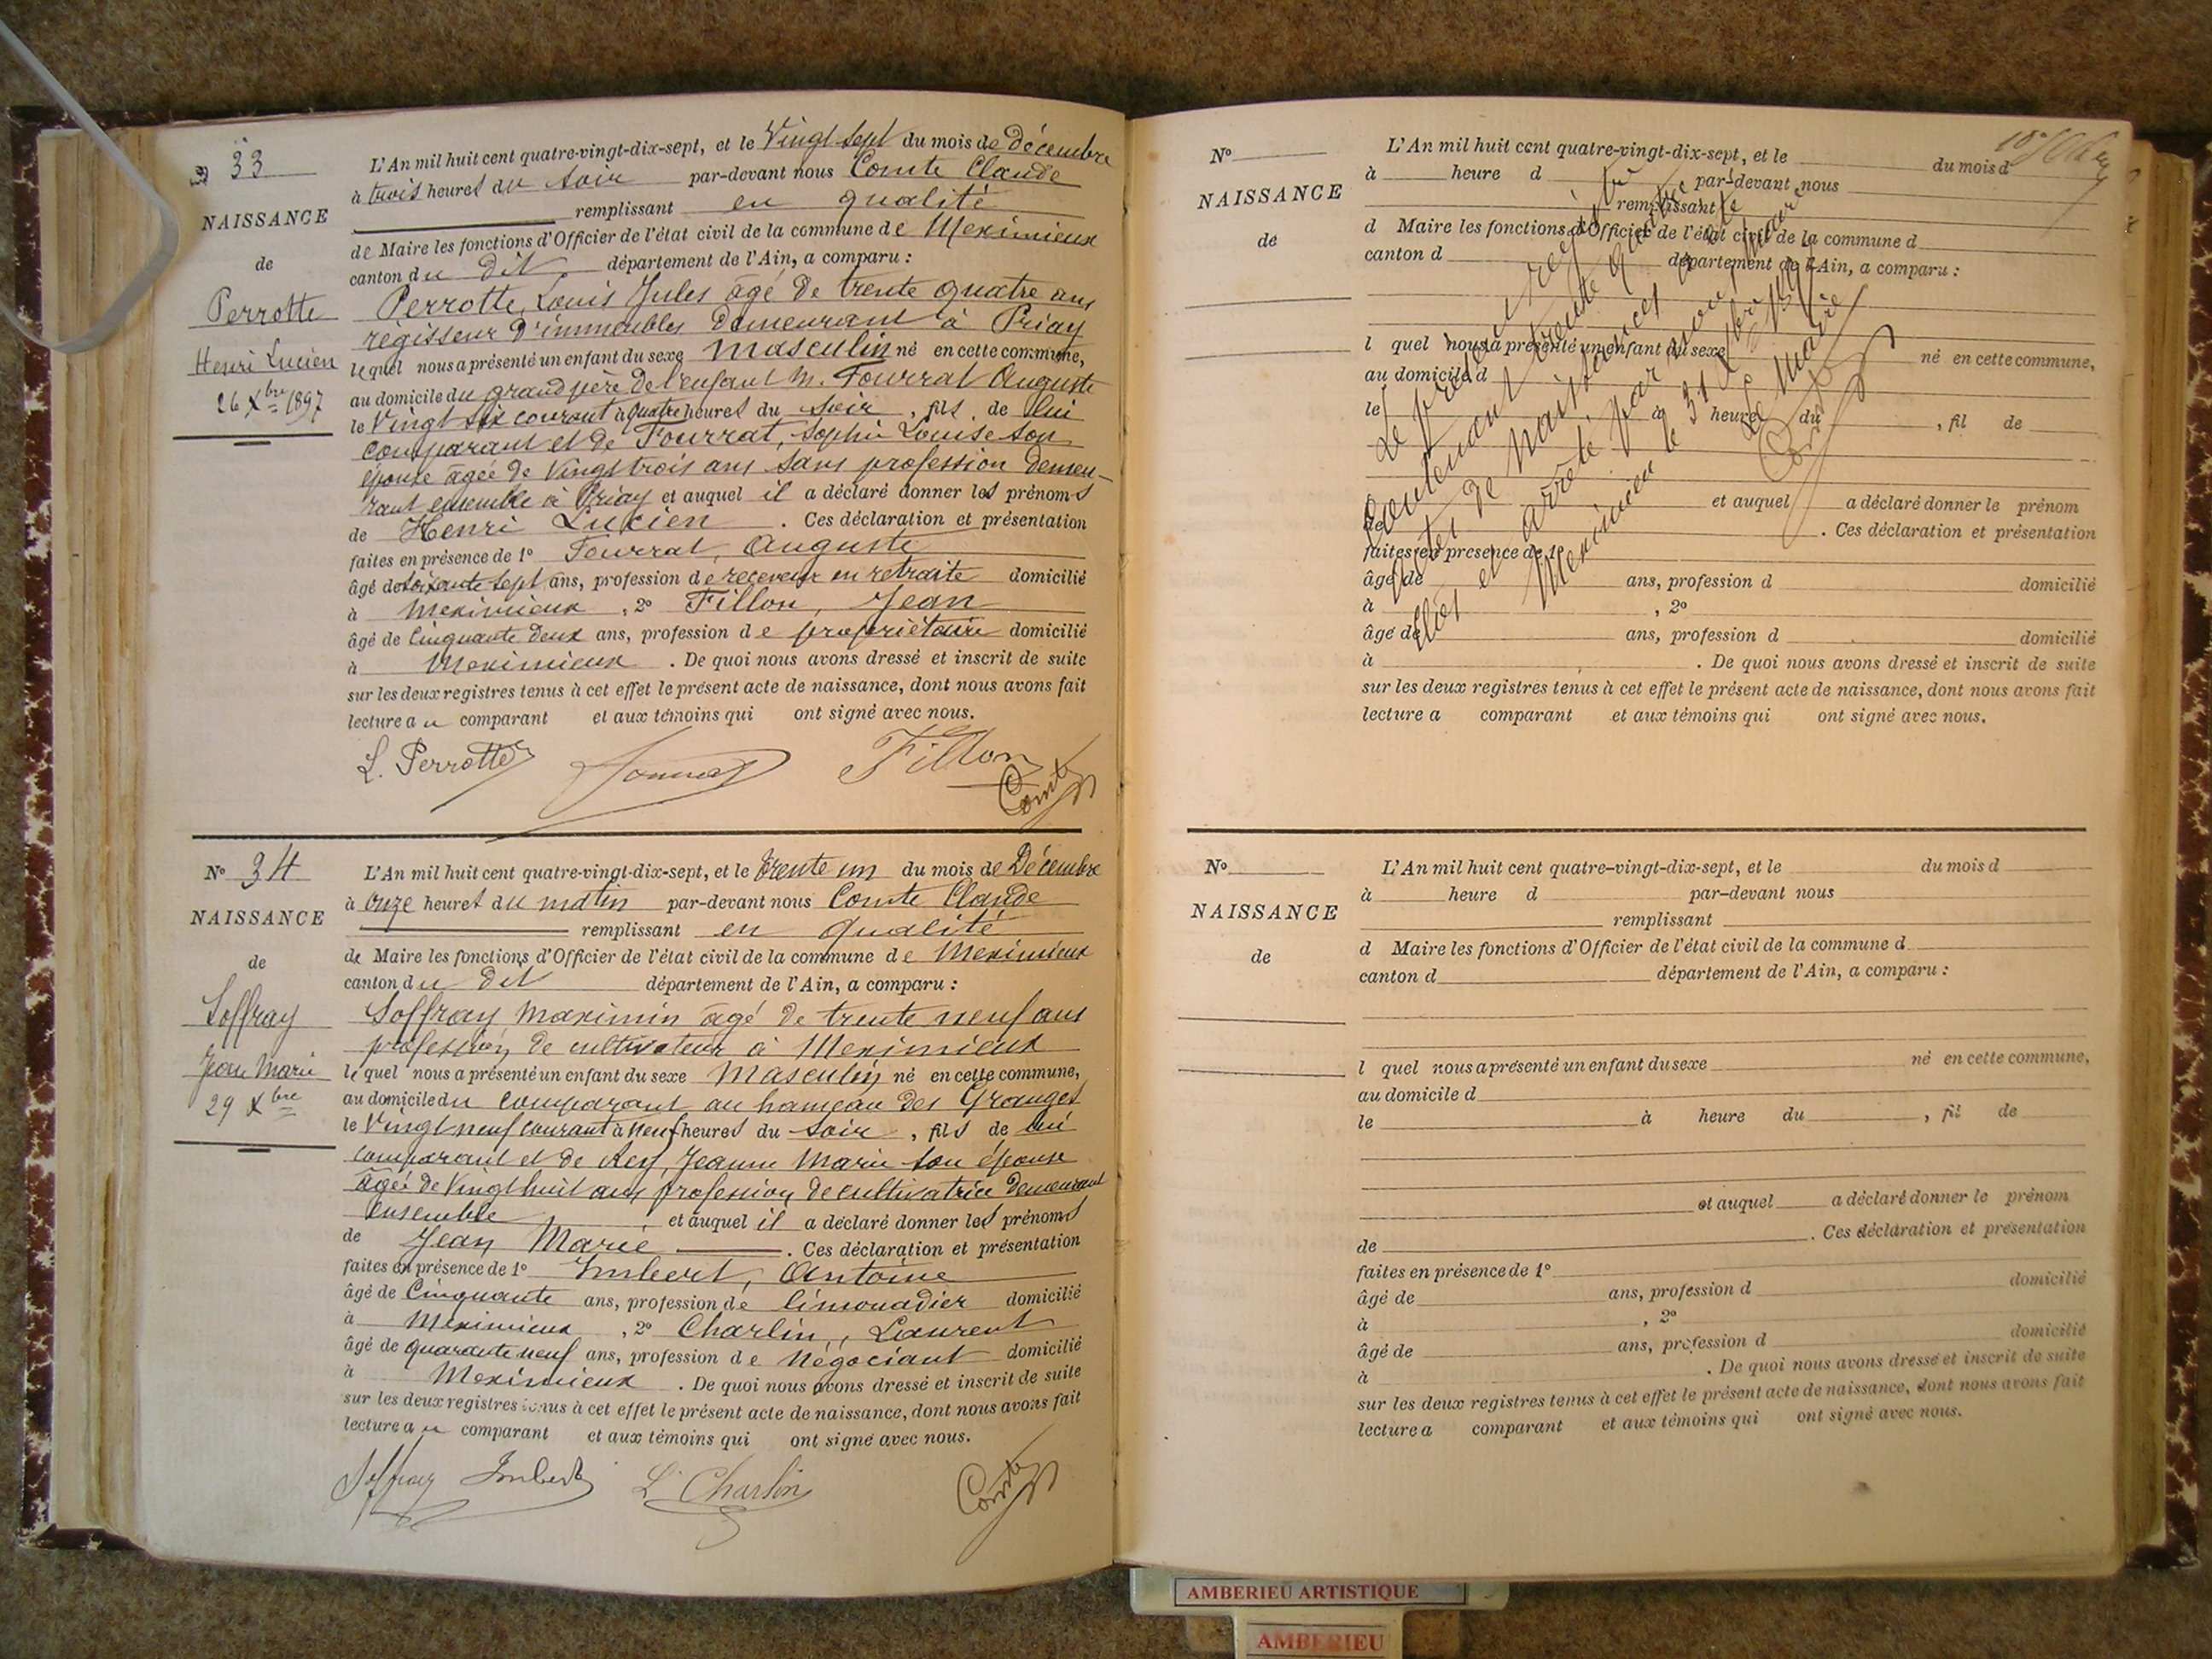 33
L'An mil huit cent quatre-vingt-dix-sept, et le Vingt sept du mois de décembre
à trois heures du soir par-devant nous Comte Claude
NAISSANCE
remplissant en qualité
de Maire les fonctions d'Officier de l'état civil de la commune de Meximieux
de
canton du dit département de l'Ain, a comparu :
Perrotte
Henri Lucien
26 Xbre 1897
Perrotte, Louis Jules âgé de trente quatre ans
régisseur d'immeubles demeurant à Priay
lequel nous a présenté un enfant du sexe masculin né en cette commune,
au domicile du grand père de l'enfant M. Fourrat Auguste
le Vingt six courant à quatre heures du soir, fils de lui
comparant et de Fourrat, Sophie Louise son
épouse âgée de Vingt trois ans sans profession demeu-
rant ensemble à Priay et auquel il a déclaré donner les prénoms
de Henri Lucien. Ces déclaration et présentation
faites en présence de 1º Fourrat, Auguste
âgé de soixante sept ans, profession de receveur en retraite domicilié
à Meximieux, 2º Fillon, Jean
âgé de Cinquante deux ans, profession de propriétaire domicilié
à Meximieux. De quoi nous avons dressé et inscrit de suite
sur les deux registres tenus à cet effet le présent acte de naissance, dont nous avons fait
lecture au comparant et aux témoins qui ont signé avec nous.
L. Perrotte Fillon
Comte
Nº 34
L'An mil huit cent quatre-vingt-dix-sept, et le trente un du mois de Décembre
à onze heures du matin par-devant nous Comte Claude
NAISSANCE
remplissant en qualité
de Maire les fonctions d'Officier de l'état civil de la commune de Meximieux
de
canton du dit département de l'Ain, a comparu :
Soffray
Jean Marie
29 Xbre
Soffray Maximin âgé de trente neuf ans
profession de cultivateur à Meximieux
lequel nous a présenté un enfant du sexe Masculin né en cette commune,
au domicile du comparant au hameau des Granges
le Vingt neuf courant à Neuf heures du soir, fils de lui
comparant et de Rey, Jeanne Marie son épouse
âgée de Vingt huit ans profession de cultivatrice demeurant
ensemble et auquel il a déclaré donner les prénoms
de Jean Marie. Ces déclaration et présentation
faites en présence de 1º Imbert, Antoine
âgé de Cinquante ans, profession de limonadier domicilié
à Meximieux, 2º Charlin, Laurent
âgé de quarante neuf ans, profession de Négociant domicilié
à Meximieux. De quoi nous avons dressé et inscrit de suite
sur les deux registres tenus à cet effet le présent acte de naissance, dont nous avons fait
lecture au comparant et aux témoins qui ont signé avec nous.
Soffray Imbert L. Charlin Comte
Nº
L'An mil huit cent quatre-vingt-dix-sept, et le du mois d
à heure d par-devant nous
NAISSANCE
remplissant
d Maire les fonctions d'Officier de l'état civil de la commune d
de
canton d département de l'Ain, a comparu :
l quel nous a présenté un enfant du sexe né en cette commune,
au domicile d
le à heure du , fil de
et auquel a déclaré donner le prénom
de . Ces déclaration et présentation
faites en présence de 1º
âgé de ans, profession d domicilié
à , 2º
âgé de ans, profession d domicilié
à . De quoi nous avons dressé et inscrit de suite
sur les deux registres tenus à cet effet le présent acte de naissance, dont nous avons fait
lecture a comparant et aux témoins qui ont signé avec nous.
Le présent registre
contenant trente quatre
actes de naissances
clos et arrêté par nous, maire
Meximieux le 31 Xbre 1897
Le Maire
Comte
Nº
L'An mil huit cent quatre-vingt-dix-sept, et le du mois d
à heure d par-devant nous
NAISSANCE
remplissant
d Maire les fonctions d'Officier de l'état civil de la commune d
de
canton d département de l'Ain, a comparu :
l quel nous a présenté un enfant du sexe né en cette commune,
au domicile d
le à heure du , fil de
et auquel a déclaré donner le prénom
de . Ces déclaration et présentation
faites en présence de 1º
âgé de ans, profession d domicilié
à , 2º
âgé de ans, profession d domicilié
à . De quoi nous avons dressé et inscrit de suite
sur les deux registres tenus à cet effet le présent acte de naissance, dont nous avons fait
lecture a comparant et aux témoins qui ont signé avec nous.
AMBERIEU ARTISTIQUE
AMBERIEU